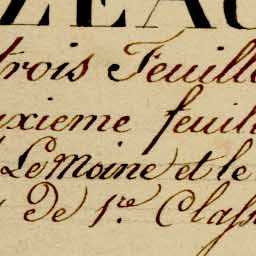 ZEAU
trois Feuille
uxieme feuill
Le Moine et le
De 1.re Class